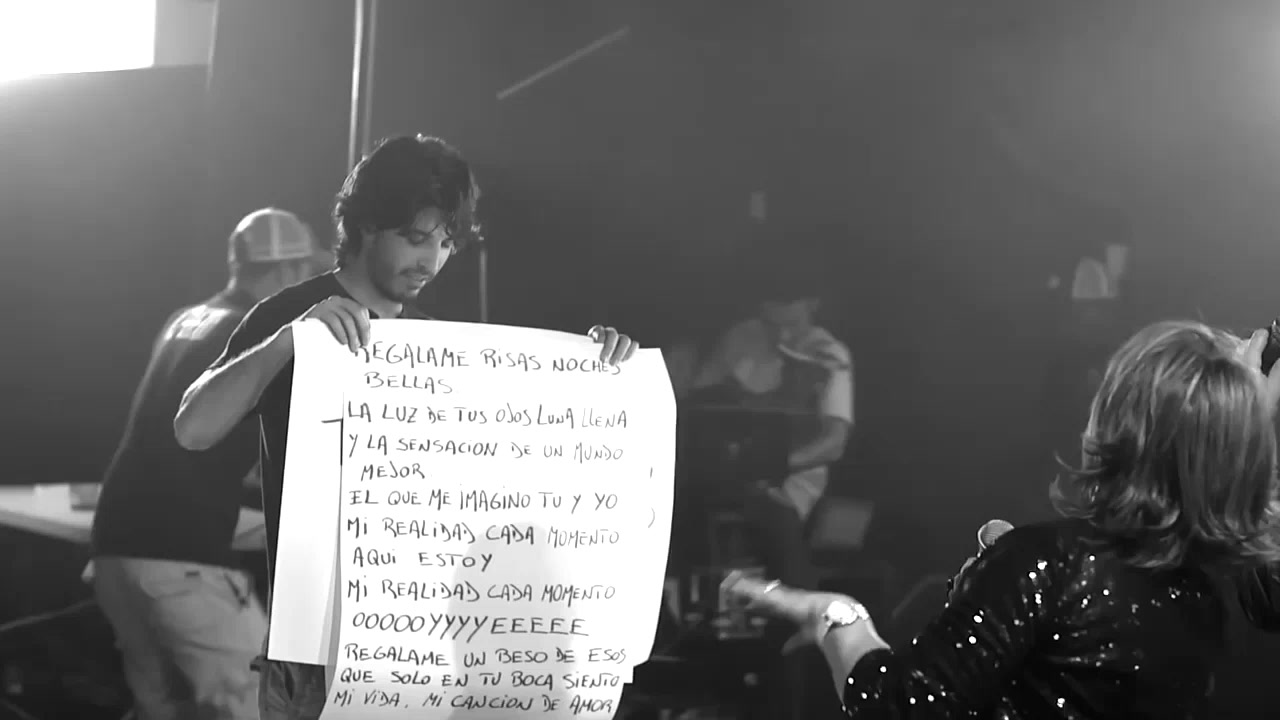 REGALAME RISAS NOCHES
BELLAS
LA LUZ DE TUS OJOS LUNA LLENA
Y LA SENSACION DE UN MUNDO
MEJOR
EL QUE ME IMAGINO TU Y YO
MI REALIDAD CADA MOMENTO
AQUI ESTOY
MI REALIDAD CADA MOMENTO
OOOOOYYYYEEEEE
REGALAME UN BESO DE ESOS
QUE SOLO EN TU BOCA SIENTO
MI VIDA. MI CANCION DE AMOR